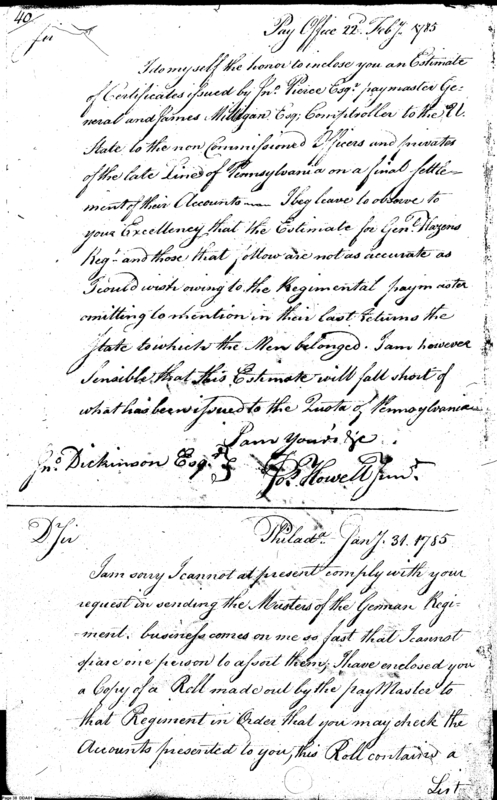 40
Pay Office 22d. Feby. 1785
Sir
I do myself the honor to inclose you an Estimate
of Certificates issued by Jno. Pierce Esqr. paymaster Ge-
neral and James Milligan Esq; Comptroller to the U.
State to the non Commissioned Officers and privates
of the late Line of Pennsylvania on a final settle-
ment of their Accounts — I beg leave to observe to
your Excellency that the Estimate for Genl. Hazens
Regt. and those that follow are not as accurate as
I could wish owing to the Regimental paymaster
omitting to mention in their last returns the
State to which the Men belonged. I am however
Sensible that this Estimate will fall short of
what has been issued to the Quota of Pennsylvania
I am Yours &c.
Jno. Dickinson Esqr. }
Jos. Howell Junr.
Philada. Jany. 31. 1785
Dr Sir
I am sorry I cannot at present comply with your
request in sending the Musters of the German Regi-
ment. business comes on me so fast that I cannot
spare one person to assort them; I have enclosed you
a Copy of a Roll made out by the payMaster to
that Regiment in Order that you may check the
Accounts presented to you, this Roll contains a
List